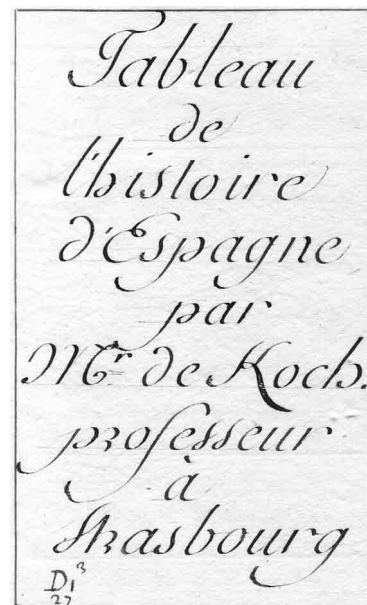 Tableau
de
l'histoire
d'Espagne
par
Mr de Koch.
professeur
à
Strasbourg
D1 3
27